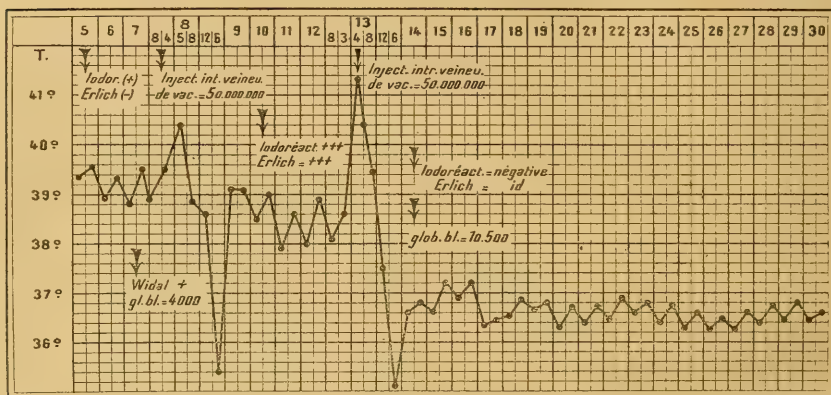 8 13
5 6 7 8 4 5 8 12 6 9 10 11 12 8 3 4 8 12 6 14 15 16 17 18 19 20 21 22 23 24 25 26 27 28 29 30
T.
Iodor. (+)
Erlich (-)
Inject. int. veineu.
de vac. = 50.000.000
Inject. intr. veineu.
de vac. = 50.000.000
41º
40º
39º
38º
37º
36º
Iodoréact. +++
Erlich = +++
Iodoréact. = négative
Erlich = id
glob. bl. = 10.500
Widal +
gl. bl. = 4000